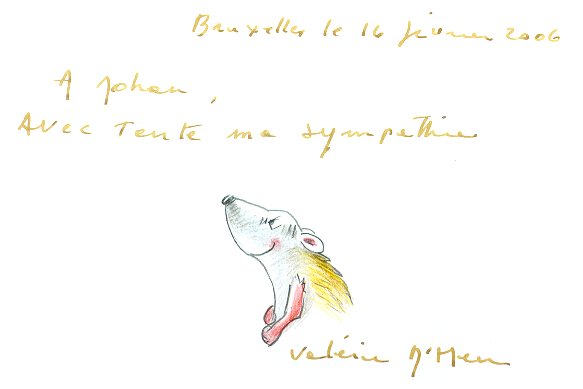 Bruxelles le 16 février 2006
A Johan,
Avec toute ma sympathie
Valérie D'Heur